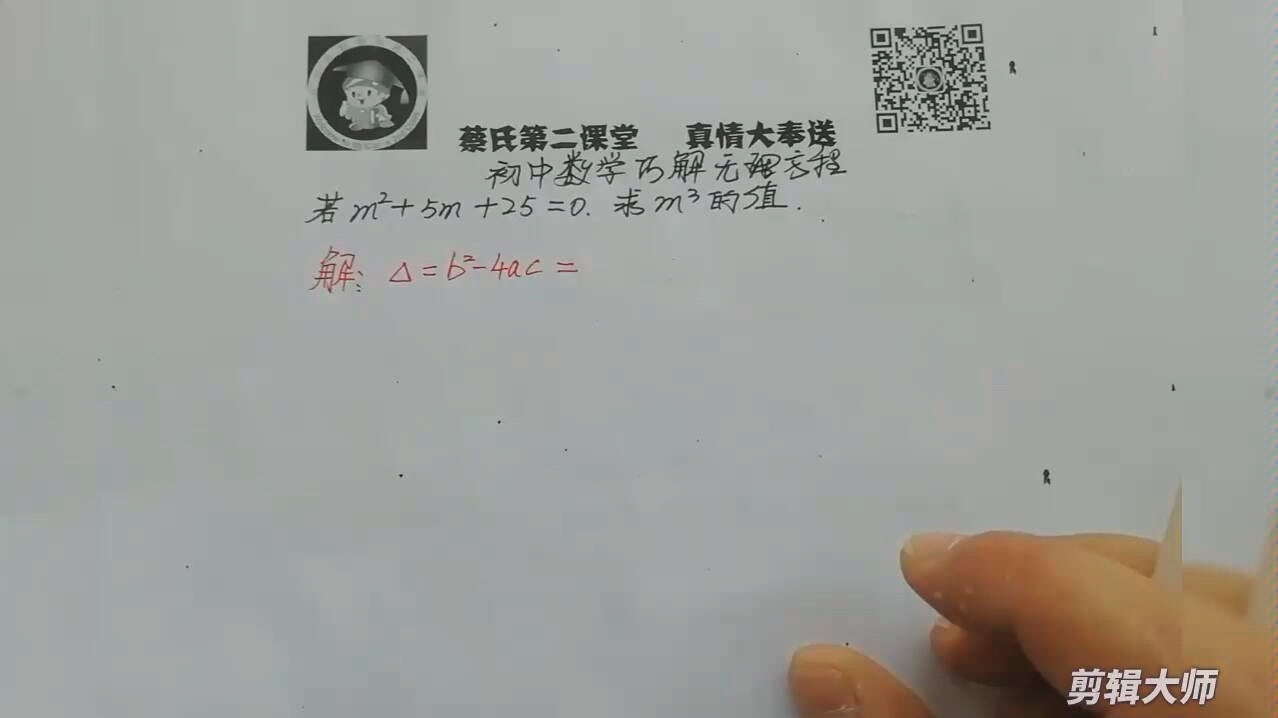 蔡氏第二课堂 真情大奉送
初中数学巧解无理方程
若m²+5m+25=0.求m³的值.
解:△=b²-4ac=
剪辑大师